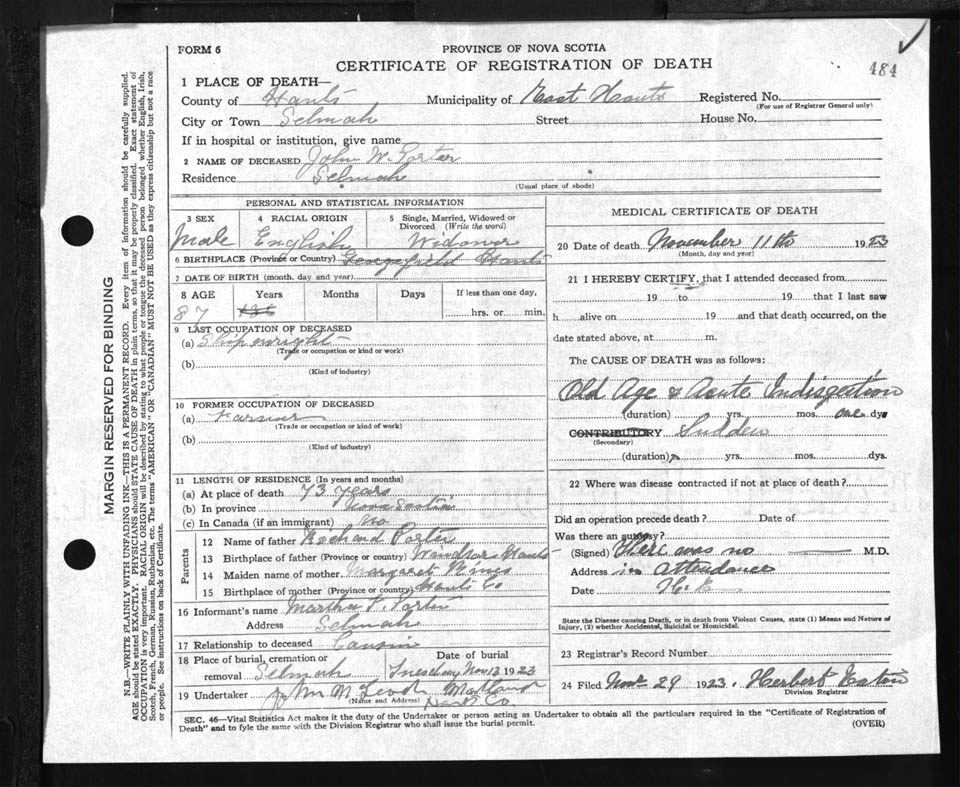 484
FORM 6
PROVINCE OF NOVA SCOTIA
CERTIFICATE OF REGISTRATION OF DEATH
1 PLACE OF DEATH—
County of Hants Municipality of East Hants Registered No.
(For use of Registrar General only)
City or Town Selmah Street House No.
If in hospital or institution, give name
2 NAME OF DECEASED John W. Porter
Residence Selmah
(Usual place of abode)
PERSONAL AND STATISTICAL INFORMATION
3 SEX 4 RACIAL ORIGIN 5 Single, Married, Widowed or Divorced (Write the word)
Male English Widower
6 BIRTHPLACE (Province or Country) Georgefield Hants
7 DATE OF BIRTH (month, day and year)
8 AGE Years Months Days If less than one day,
87 hrs. or min.
9 LAST OCCUPATION OF DECEASED
(a) Shipwright
(Trade or occupation or kind or work)
(b)
(Kind of industry)
10 FORMER OCCUPATION OF DECEASED
(a) Farmer
(Trade or occupation or kind or work)
(b)
(Kind of industry)
11 LENGTH OF RESIDENCE (In years and months)
(a) At place of death 73 years
(b) In province Nova Scotia
(c) In Canada (if an immigrant) no
Parents
12 Name of father Richard Porter
13 Birthplace of father (Province or country) Windsor Hants
14 Maiden name of mother Margaret
15 Birthplace of mother (Province or country) Hants Co
16 Informant's name Martha F. Porter
Address Selmah
17 Relationship to deceased Cousin
18 Place of burial, cremation or Date of burial
removal Selmah Tuesday Nov 13 1923
19 Undertaker John McLeod Maitland
(Name and Address) Hants Co.
MEDICAL CERTIFICATE OF DEATH
20 Date of death November 11th 1923
(Month, day and year)
21 I HEREBY CERTIFY, that I attended deceased from
19 to 19 that I last saw
h alive on 19 and that death occurred, on the
date stated above, at m.
The CAUSE OF DEATH was as follows:
Old Age & Acute Indisgestion
(duration) yrs. mos. one dys
CONTRIBUTORY Sudden
(Secondary)
(duration) yrs. mos. dys.
22 Where was disease contracted if not at place of death?
Did an operation precede death? Date of
Was there an autopsy?
(Signed) There was no M.D.
Address in attendance
Date H. E
State the Disease causing Death, or in death from Violent Causes, state (1) Means and Nature of
Injury, (2) whether Accidental, Suicidal or Homicidal.
23 Registrar's Record Number
24 Filed Nov 29 1923. Herbert Eaton
Division Registrar
SEC. 46—Vital Statistics Act makes it the duty of the Undertaker or person acting as Undertaker to obtain all the particulars required in the "Certificate of Registration of
Death" and to fyle the same with the Division Registrar who shall issue the burial permit. (OVER)
MARGIN RESERVED FOR BINDING
N.B.—WRITE PLAINLY WITH UNFADING INK—THIS IS A PERMANENT RECORD. Every item of information should be carefully supplied.
AGE should be stated EXACTLY. PHYSICIANS should STATE CAUSE OF DEATH in plain terms, so that it may be properly classified. Exact statement of
OCCUPATION is very important. RACIAL ORIGIN will be described by stating to what people or tongue the deceased person belonged whether English, Irish,
Scotch, French, German, Russian, Ruthenian, etc. The terms "AMERICAN" OR "CANADIAN" MUST NOT BE USED as they express citizenship but not a race
or people. See instructions on back of Certificate.